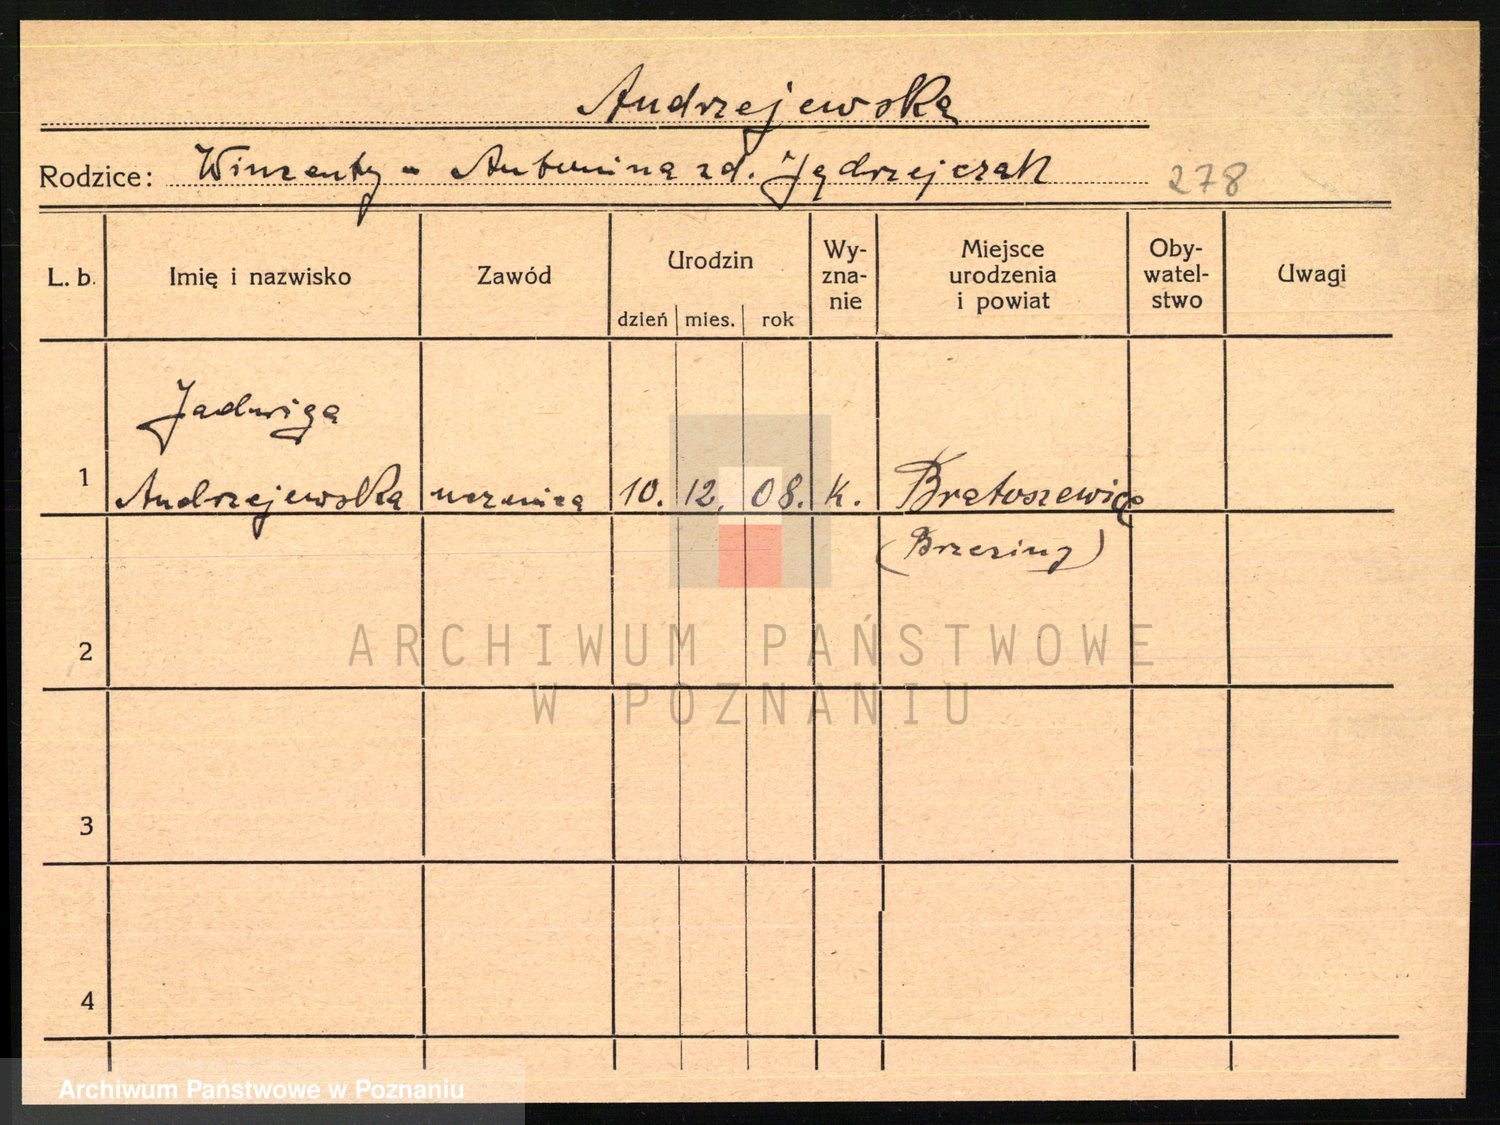 Andrzejewska
Rodzice: Wincenty - Antonina zd. Jędrzejczak
278
L. b. Imię i nazwisko Zawód Urodzin Wy-zna-nie Miejsce urodzenia i powiat Oby-watel-stwo Uwagi
dzień mies. rok
Jadwiga
1 Andrzejewska uczenica 10. 12. 08. K. Bratoszewice
(Brzeziny)
2
ARCHIWUM PAŃSTWOWE
W POZNANIU
3
4
Archiwum Państwowe w Poznaniu